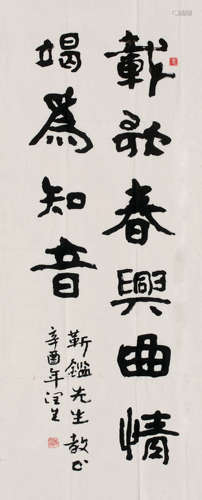 載歌春興曲情
竭為知音
靳鑑先生教正
辛酉年